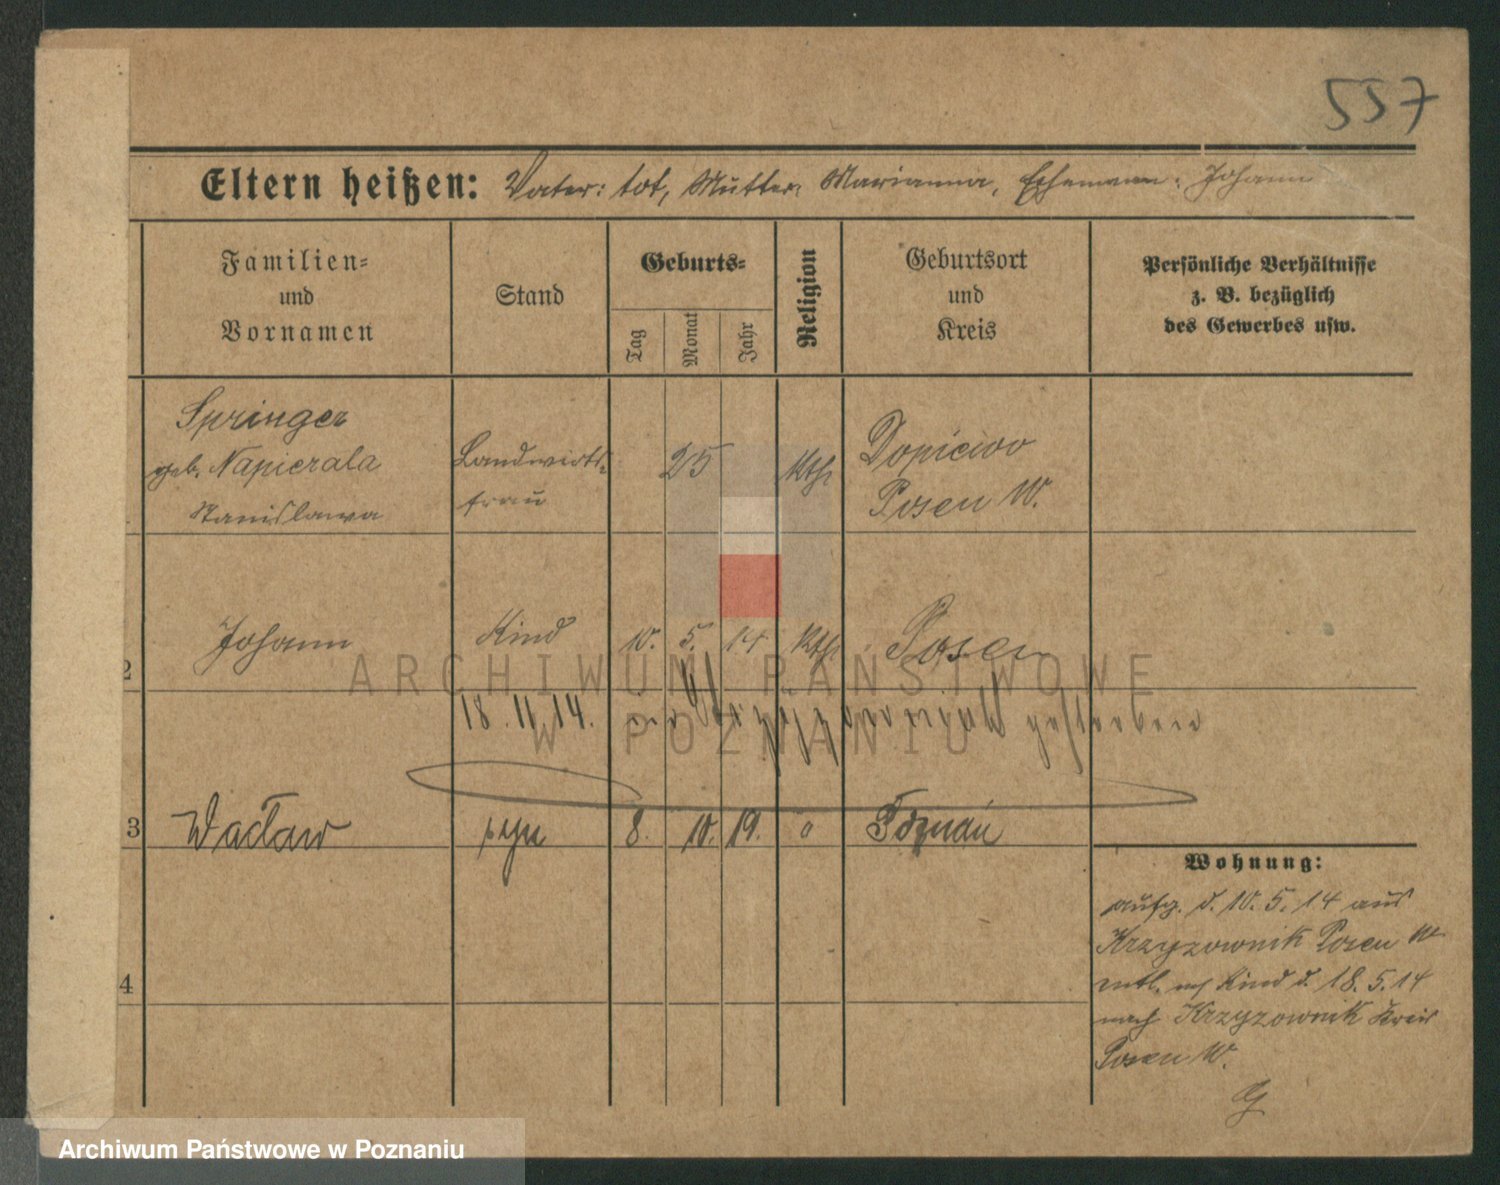 557
Eltern heißen: Vater: tot, Mutter: Marianna, Ehemann: Johann
Familien=
und
Vornamen
Stand
Geburts=
Tag
Monat
Jahr
Religion
Geburtsort
und
Kreis
Persönliche Verhältnisse
z. B. bezüglich
des Gewerbes usw.
Springer
geb. Napierala
Stanislawa
Landwirts-
frau
25
kth.
Dopiewo
Posen W.
2
Johann
Kind
10. 5. 14
kth.
Posen
18. 11. 14. gestorben
3
Wacław
syn
8. 10. 19.
Poznań
4
Wohnung:
aufg. d. 10. 5. 14 aus
Krzyzownik Posen W
entl. m/ Kind d. 18. 5. 14
nach Krzyzownik Kreis
Posen W.
ARCHIWUM PAŃSTWOWE
W POZNANIU
Archiwum Państwowe w Poznaniu